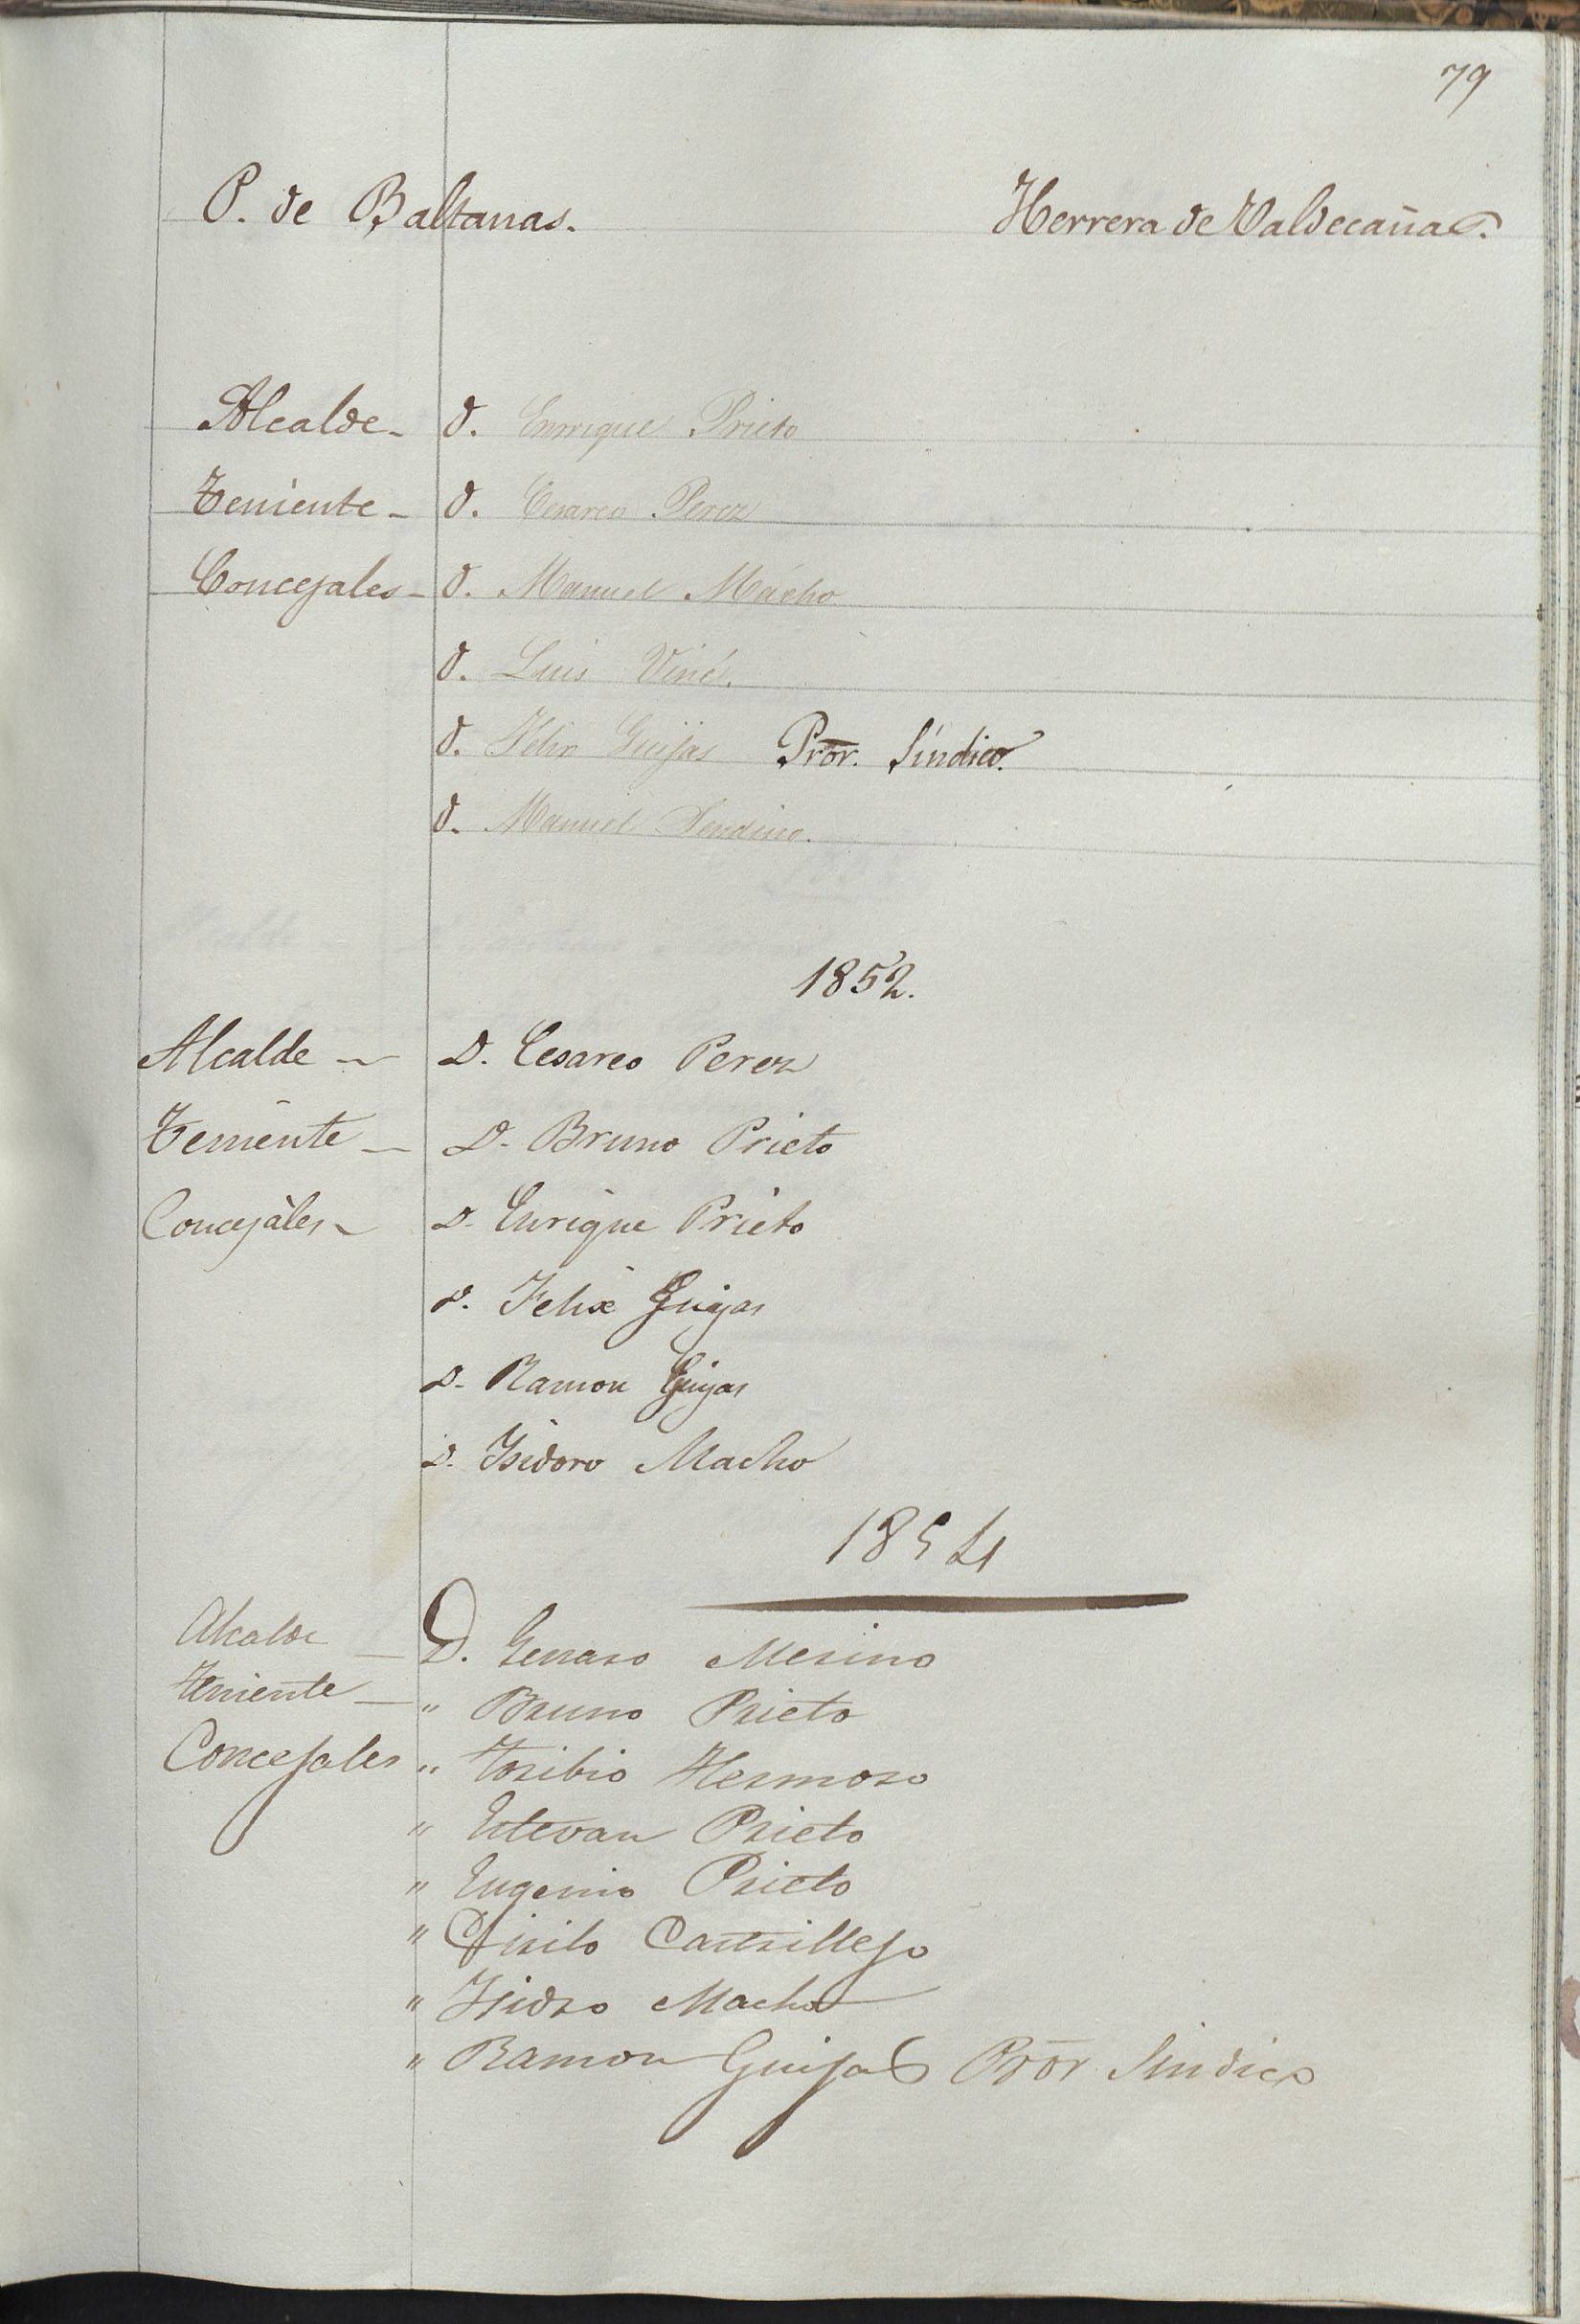 79
P. de Baltanas. Herrera de Valdecañas.
Alcalde - D. Enrrique Prieto
Teniente - D. Cesareo Perez
Concejales - D. Manuel Macho
D. Luis Viné.
D. Felix Guijas Pror. Síndico.
D. Manuel Sendino.
1852.
Alcalde - D. Cesareo Perez
Teniente - D. Bruno Prieto
Concejáles - D. Enrique Prieto
D. Felix Guijas
D. Ramon Guijas
D. Ysidoro Macho
1854
Alcalde - D. Genaro Merino
Teniente - " Bruno Prieto
Concejales " Toribio Hermoso
" Estevan Prieto
" Eugenio Prieto
" Cirilo Castrillejo
" Ysidro Macho
" Ramon Guijas Pror Sindico